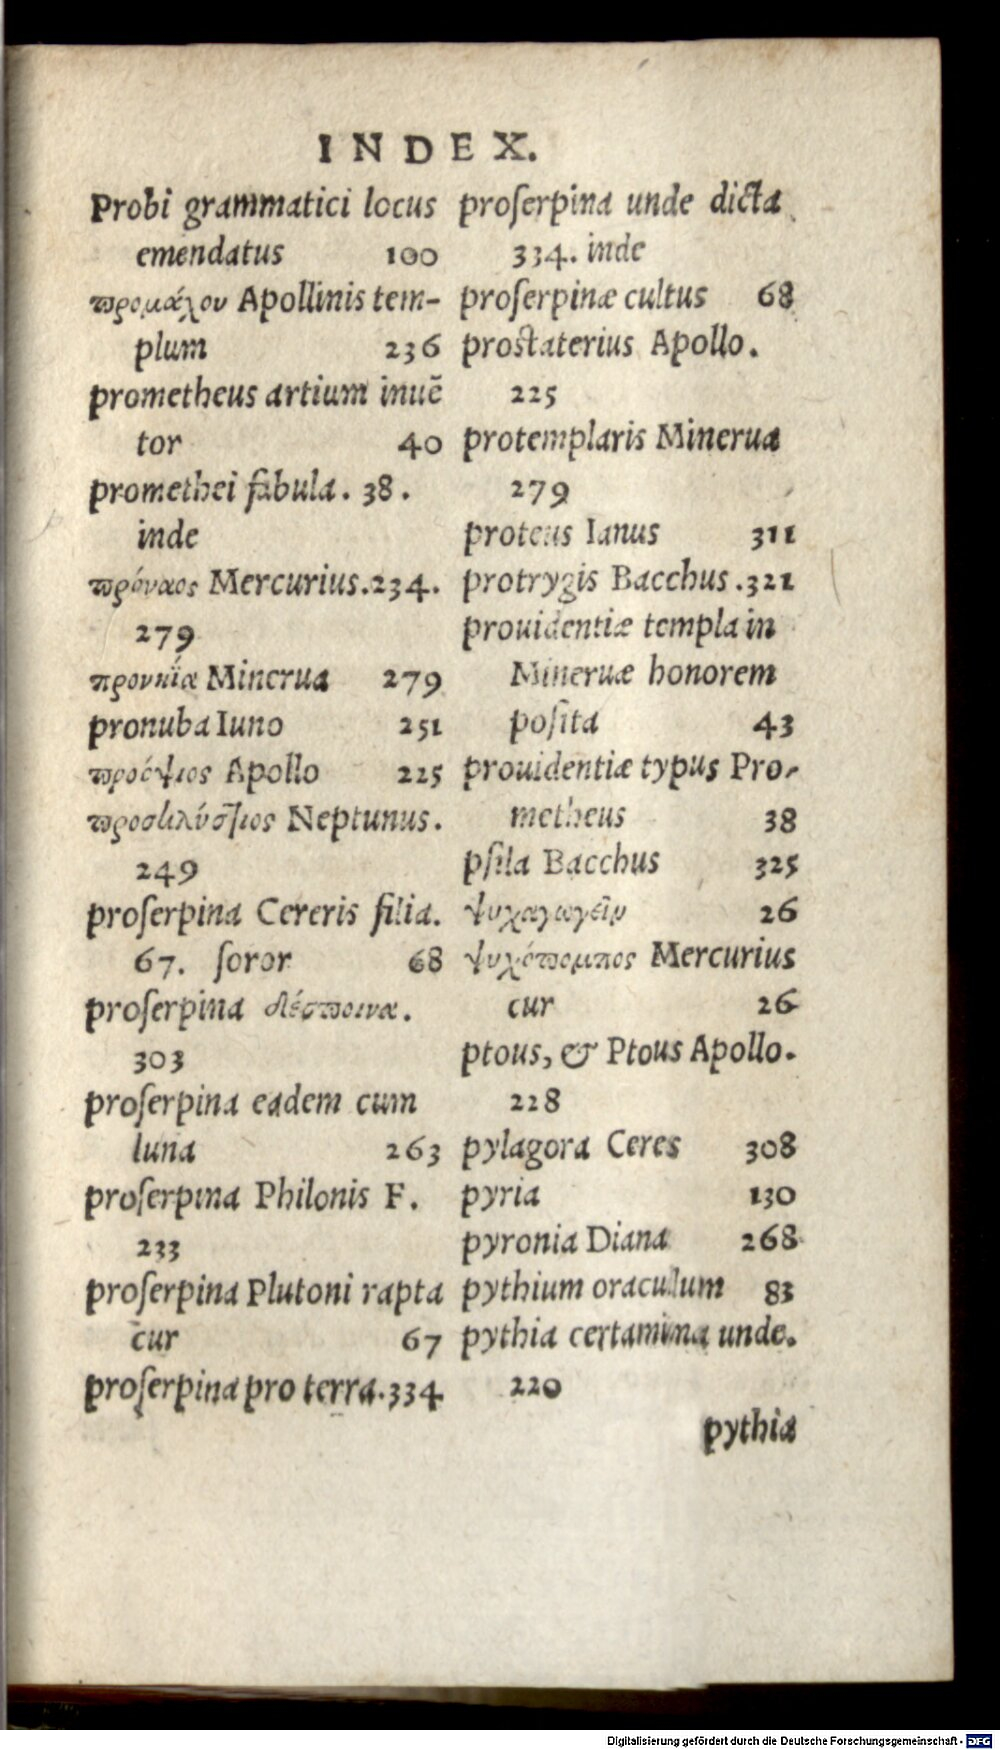 INDEX.
Probi grammatici locus
emendatus 100
προμάχου Apollinis tem-
plum 236
prometheus artium inuē
tor 40
promethei fabula. 38.
inde
πρόναος Mercurius. 234.
279
προνηΐα Minerua 279
pronuba Iuno 251
προόψιος Apollo 225
προσκλύστιος Neptunus.
249
proſerpina Cereris filia.
67. ſoror 68
proſerpina δέσποινα.
303
proſerpina eadem cum
luna 263
proſerpina Philonis F.
233
proſerpina Plutoni rapta
cur 67
proſerpina pro terra. 334
proſerpina unde dicta
334. inde
proſerpinæ cultus 68
prostaterius Apollo.
225
protemplaris Minerua
279
proteus Ianus 311
protrygis Bacchus. 321
prouidentiæ templa in
Mineruæ honorem
poſita 43
prouidentiæ typus Pro-
metheus 38
pſila Bacchus 325
ψυχαγωγεῖν 26
ψυχόπομπος Mercurius
cur 26
ptous, & Ptous Apollo.
228
pylagora Ceres 308
pyria 130
pyronia Diana 268
pythium oraculum 83
pythia certamina unde.
220
pythia
Digitalisierung gefördert durch die Deutsche Forschungsgemeinschaft - DFG